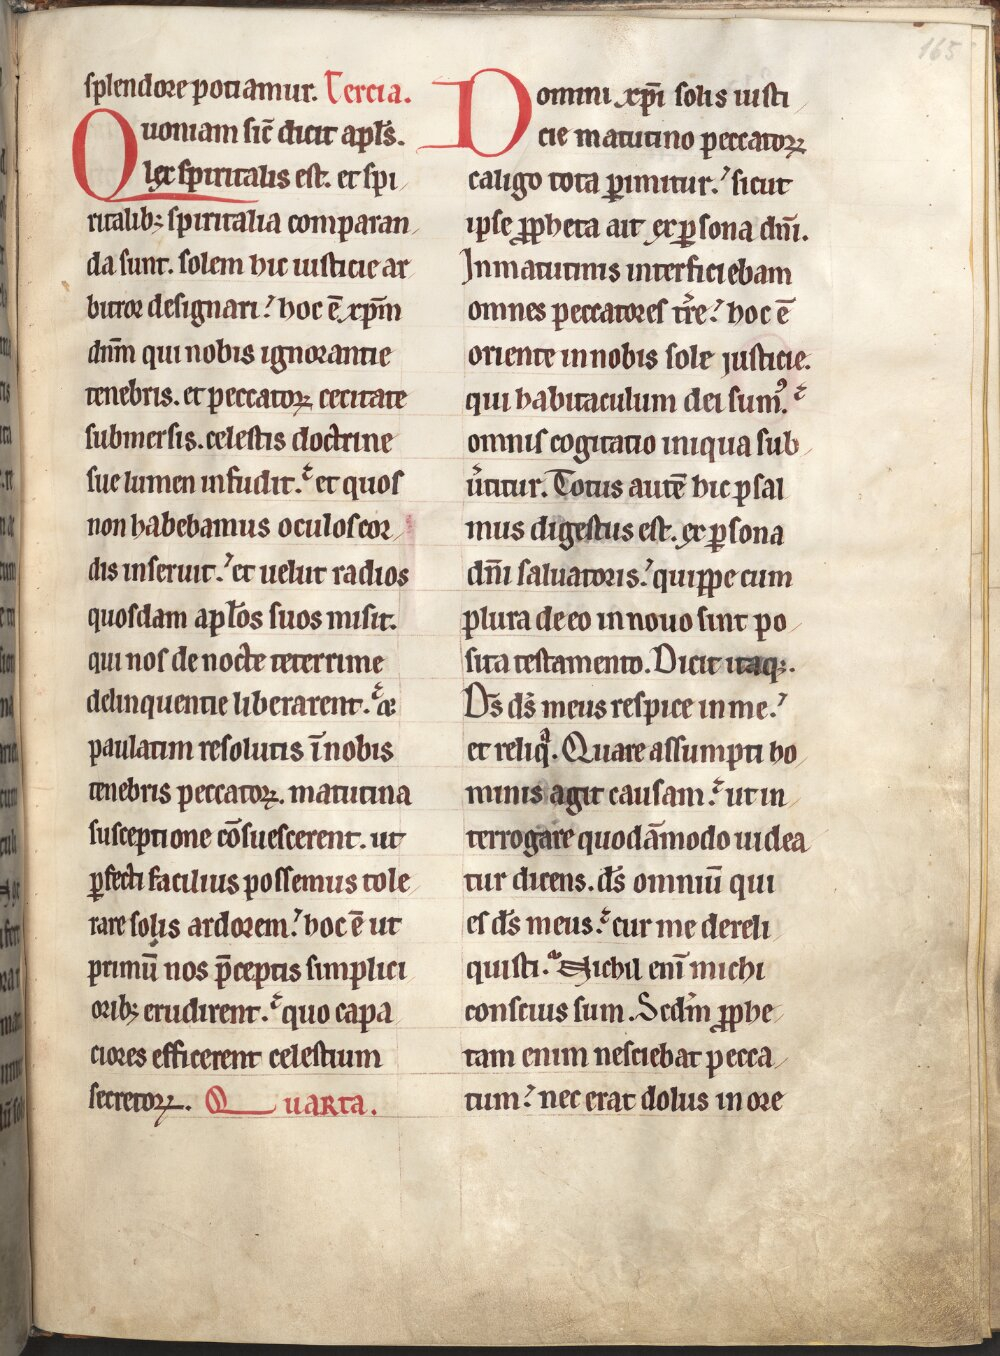 165
splendore potiamur. Tercia.
Quoniam sic̄ dicit apl̄s.
lex spiritalis est. et spi
ritalib; spiritalia comparan
da sunt. solem hic iusticie ar
bitror designari? hoc ē xp̄m
dn̄m qui nobis ignorantie
tenebris. et peccatoꝝ cecitate
submersis. celestis doctrine
sue lumen infudit. et quos
non habebamus oculos cor
dis inseruit. et uelut radios
quosdam apl̄os suos misit.
qui nos de nocte teterrime
delinquentie liberarent. &
paulatim resolutis ī nobis
tenebris peccatoꝝ. matutina
susceptione cōsuescerent. ut
ꝑfecti facilius possemus tole
rare solis ardorem? hoc ē ut
primū nos p̄ceptis simplici
orib; erudirent. quo capa
ciores efficerent celestium
secretoꝝ. Quarta.
Domini xp̄i solis iusti
cie matutino peccatoꝝ
caligo tota ꝑimitur. sicut
ipse ꝓpheta ait ex ꝑsona dn̄i.
In matutinis interficiebam
omnes peccatores tr̄e? hoc ē
oriente in nobis sole iusticie.
qui habitaculum dei sumꝰ.
omnis cogitatio iniqua sub
ũtitur. Totus autē hic psal
mus digestus est. ex ꝑsona
dn̄i saluatoris. quippe cum
plura de eo in nouo sint po
sita testamento. Dicit itaq;.
Ds̄ ds̄ meus respice in me.
et reliqͣ. Quare assumpti ho
minis agit causam. ut in
terrogare quodāmodo uidea
tur dicens. ds̄ omniū qui
es ds̄ meus. cur me dereli
quisti. Nichil enī michi
conscius sum. Sedm̄ ꝓphe
tam enim nesciebat pecca
tum? nec erat dolus in ore